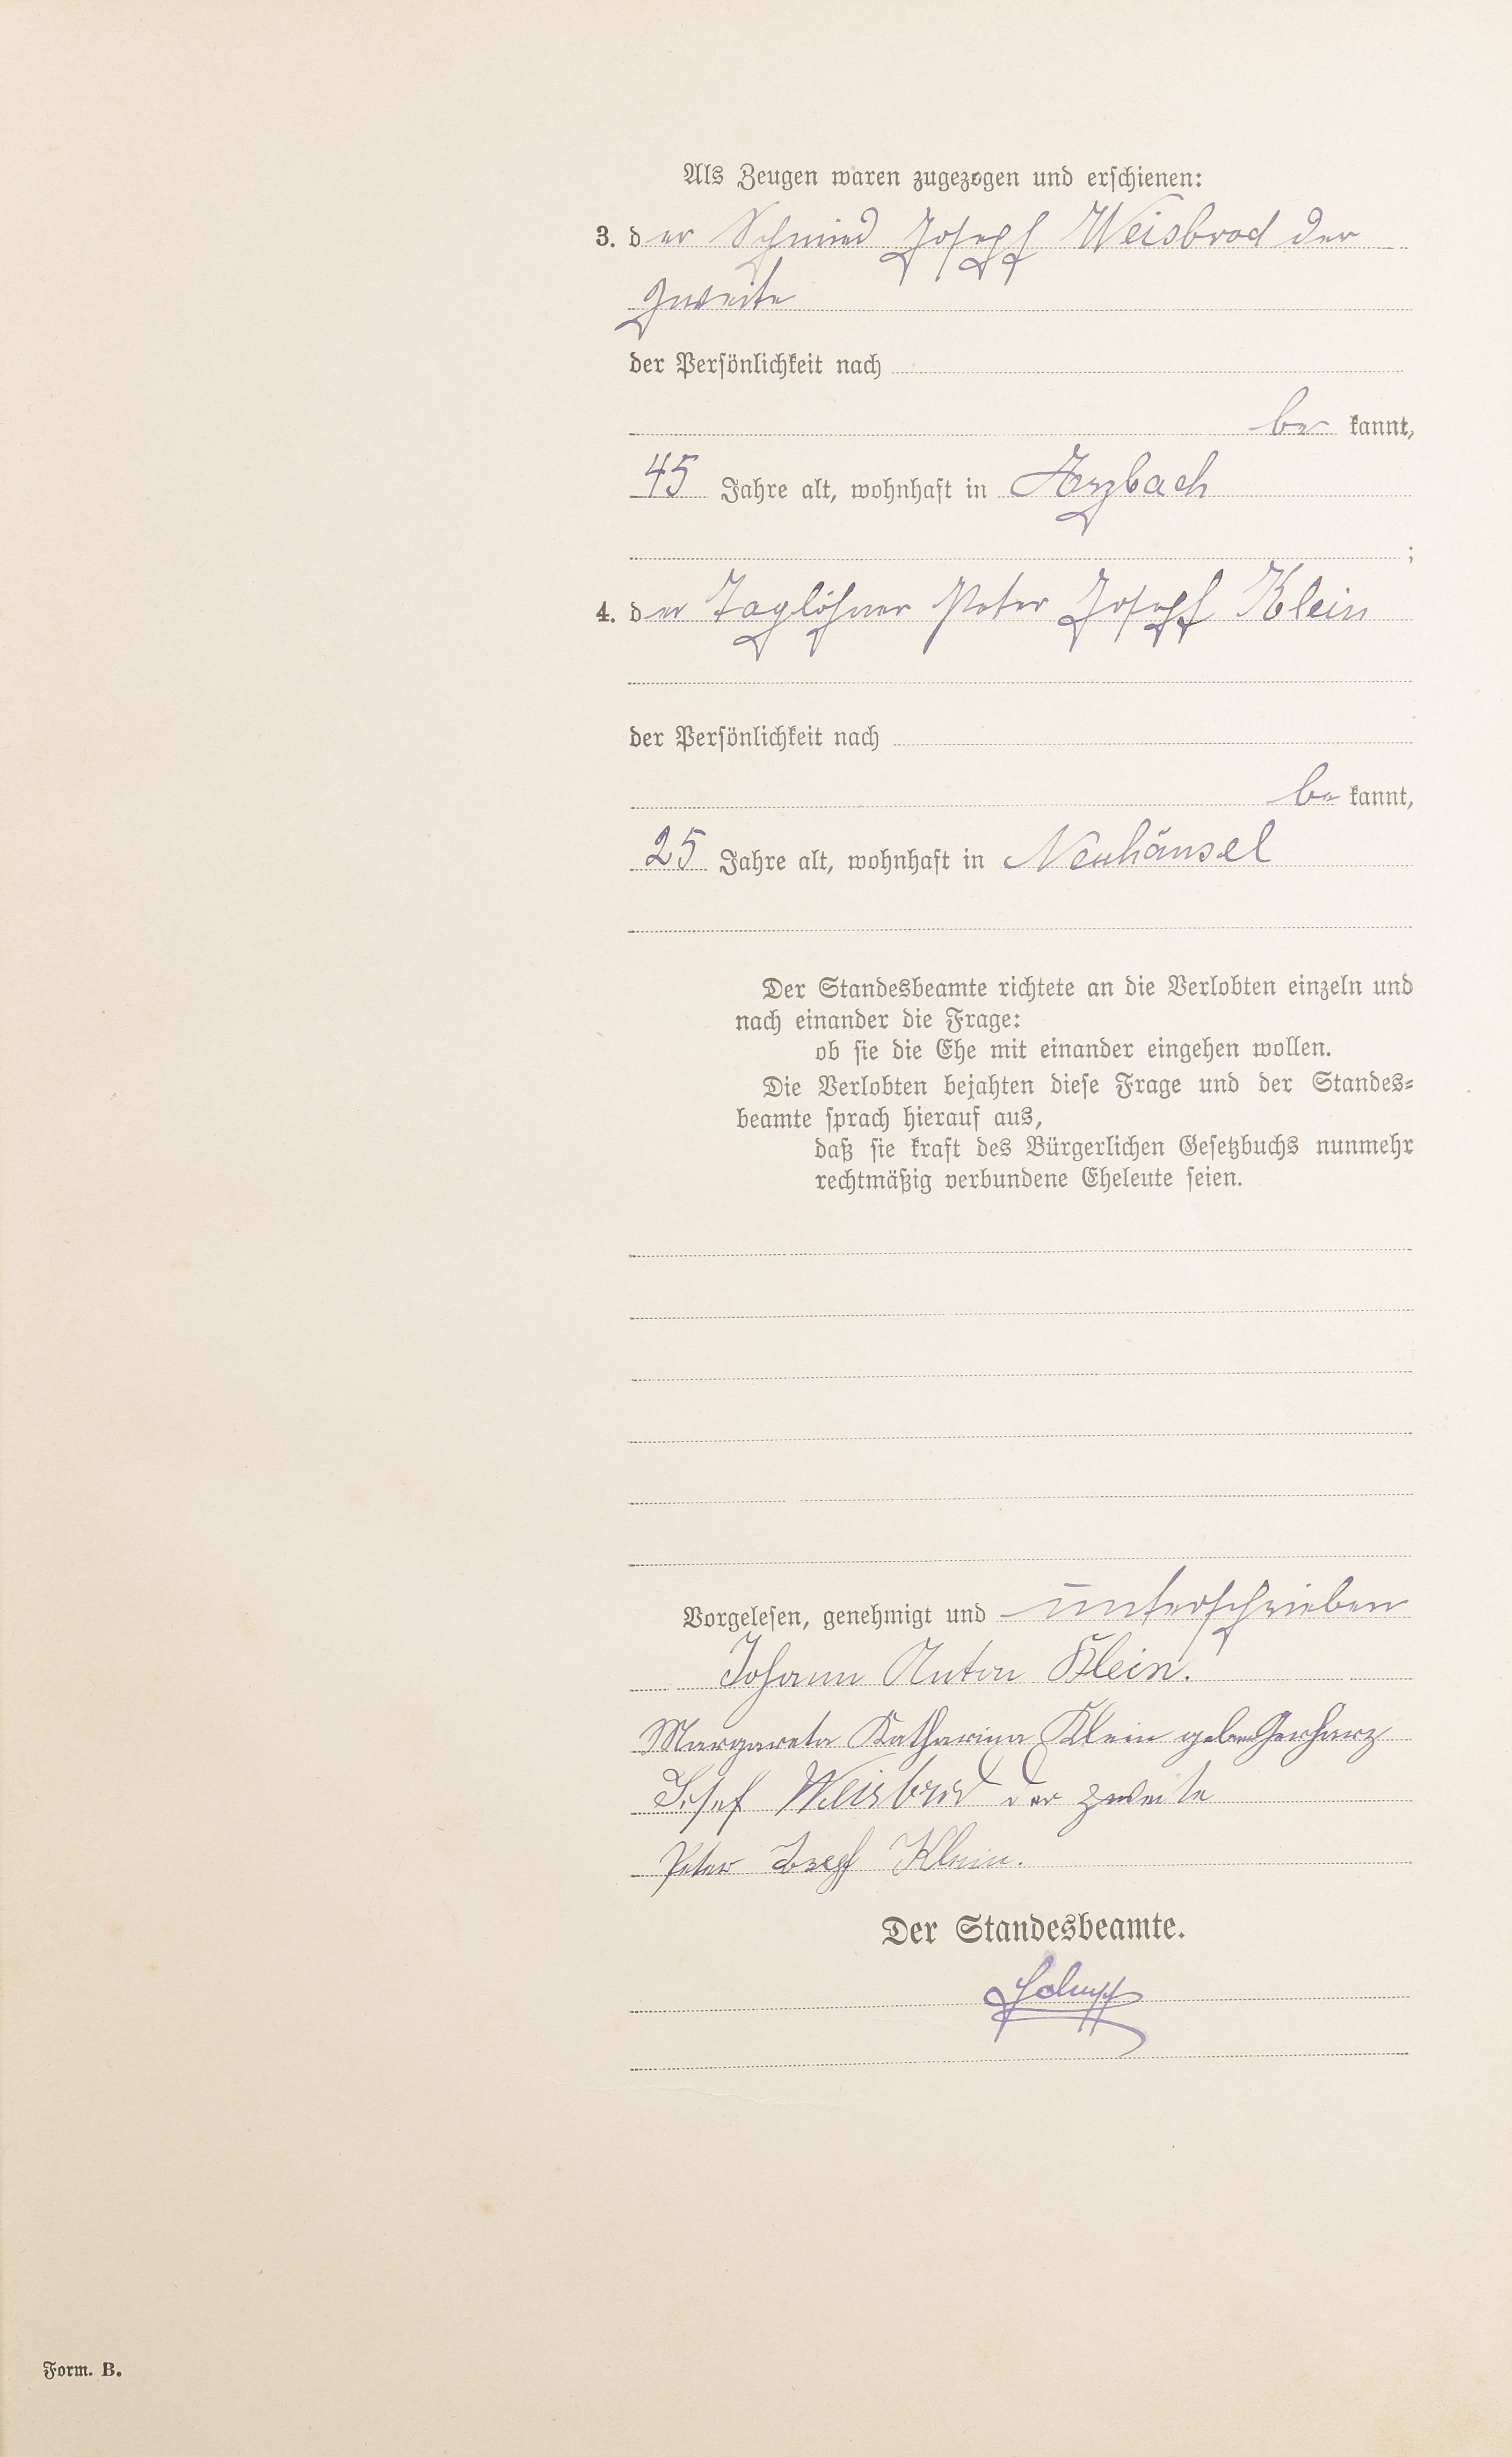 Als Zeugen waren zugezogen und erschienen:
3. der Schmied Joseph Weisbrod der
zweite
der Persönlichkeit nach
be kannt,
45 Jahre alt, wohnhaft in Arzbach
;
4. der Taglöhner Peter Joseph Klein
der Persönlichkeit nach
be kannt,
25 Jahre alt, wohnhaft in Neuhäusel
Der Standesbeamte richtete an die Verlobten einzeln und
nach einander die Frage:
ob sie die Ehe mit einander eingehen wollen.
Die Verlobten bejahten diese Frage und der Standes-
beamte sprach hierauf aus,
daß sie kraft des Bürgerlichen Gesetzbuchs nunmehr
rechtmäßig verbundene Eheleute seien.
Vorgelesen, genehmigt und unterschrieben
Johann Anton Klein.
Margareta Katharina Klein geb Gerharz
Josef Weisbrod der zweite
Peter Josef Klein.
Der Standesbeamte.
Form. B.